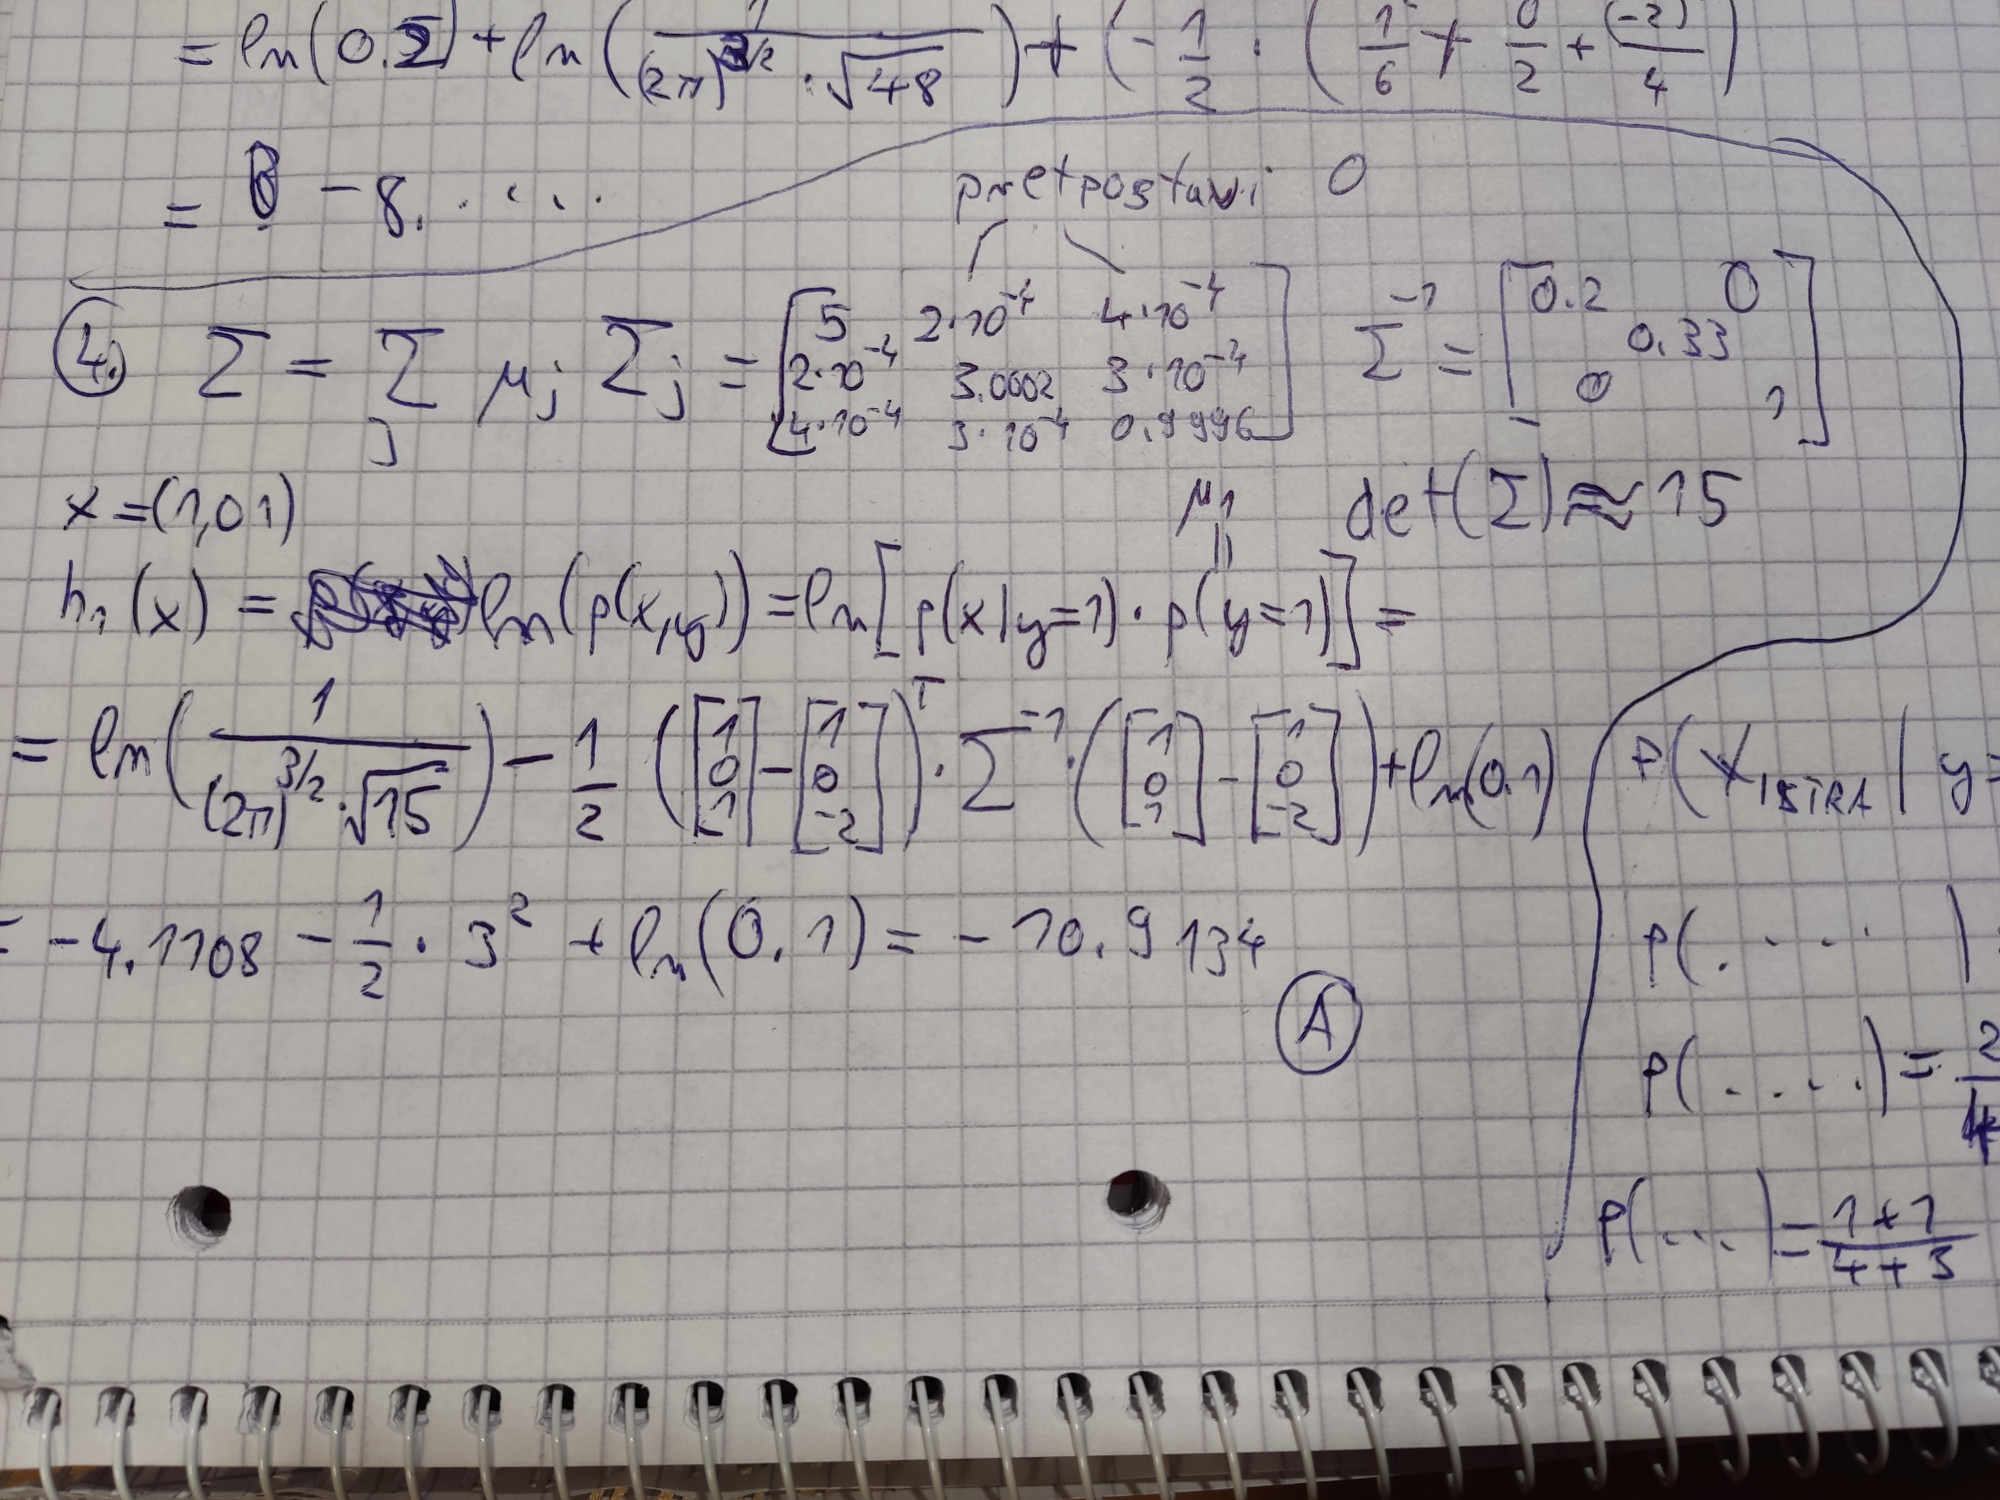 = ln(0.2) + ln(1/((2π)^3/2 · √48)) + (-1/2 · (1/6 + 0/2 + (-2)/4)
= - 8. . . . .
pretpostavi 0
4. Σ = Σ_j μj Σj = [5 2·10^-4 4·10^-4; 2·10^-4 3.0002 3·10^-4; 4·10^-4 3·10^-4 0.9996] Σ^-1 = [0.2 0; 0.33; 0 1]
x = (1,0 1)
μ1
det(Σ) ≈ 15
h1(x) = ln(p(x,y)) = ln[p(x|y=1) · p(y=1)] =
= ln(1/((2π)^3/2 · √15)) - 1/2 ([1 0 1] - [1 0 -2])^T · Σ^-1 · ([1 0 1] - [1 0 -2]) + ln(0.1)
= -4.1108 - 1/2 · 3^2 + ln(0.1) = -10.9134
A
P(X_ISTRA | y=
P(. . . . )
P(. . . .) = 2/4
P(. . .) = 1+1/4+3